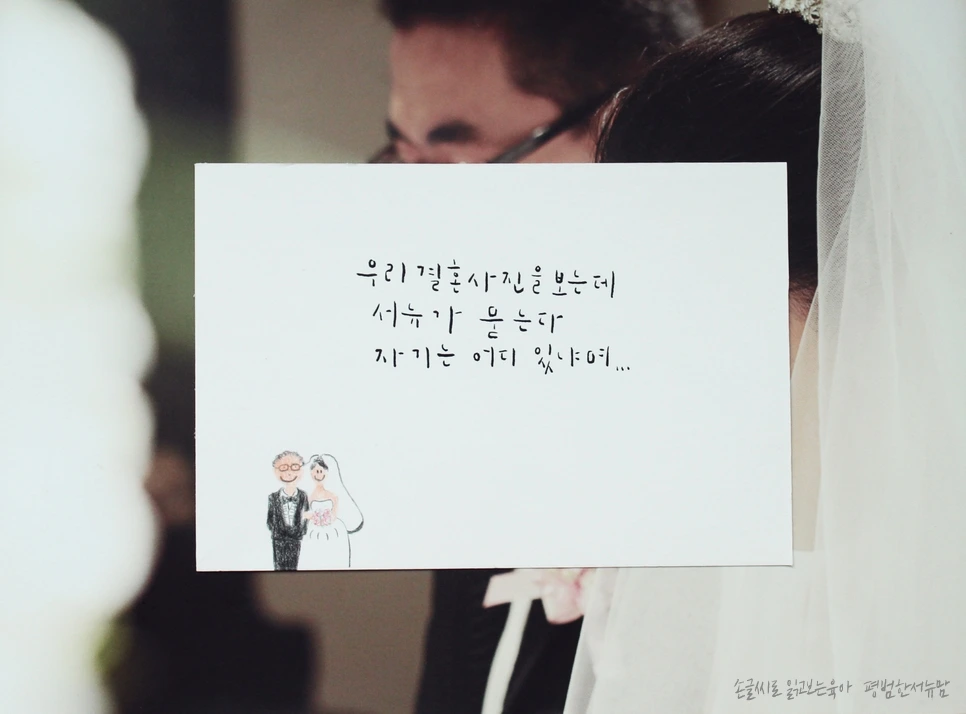 우리 결혼사진을 보는데
서뉴가 묻는다
자기는 어디 있냐며...
손글씨로 읽고보는육아 평범한서뉴맘